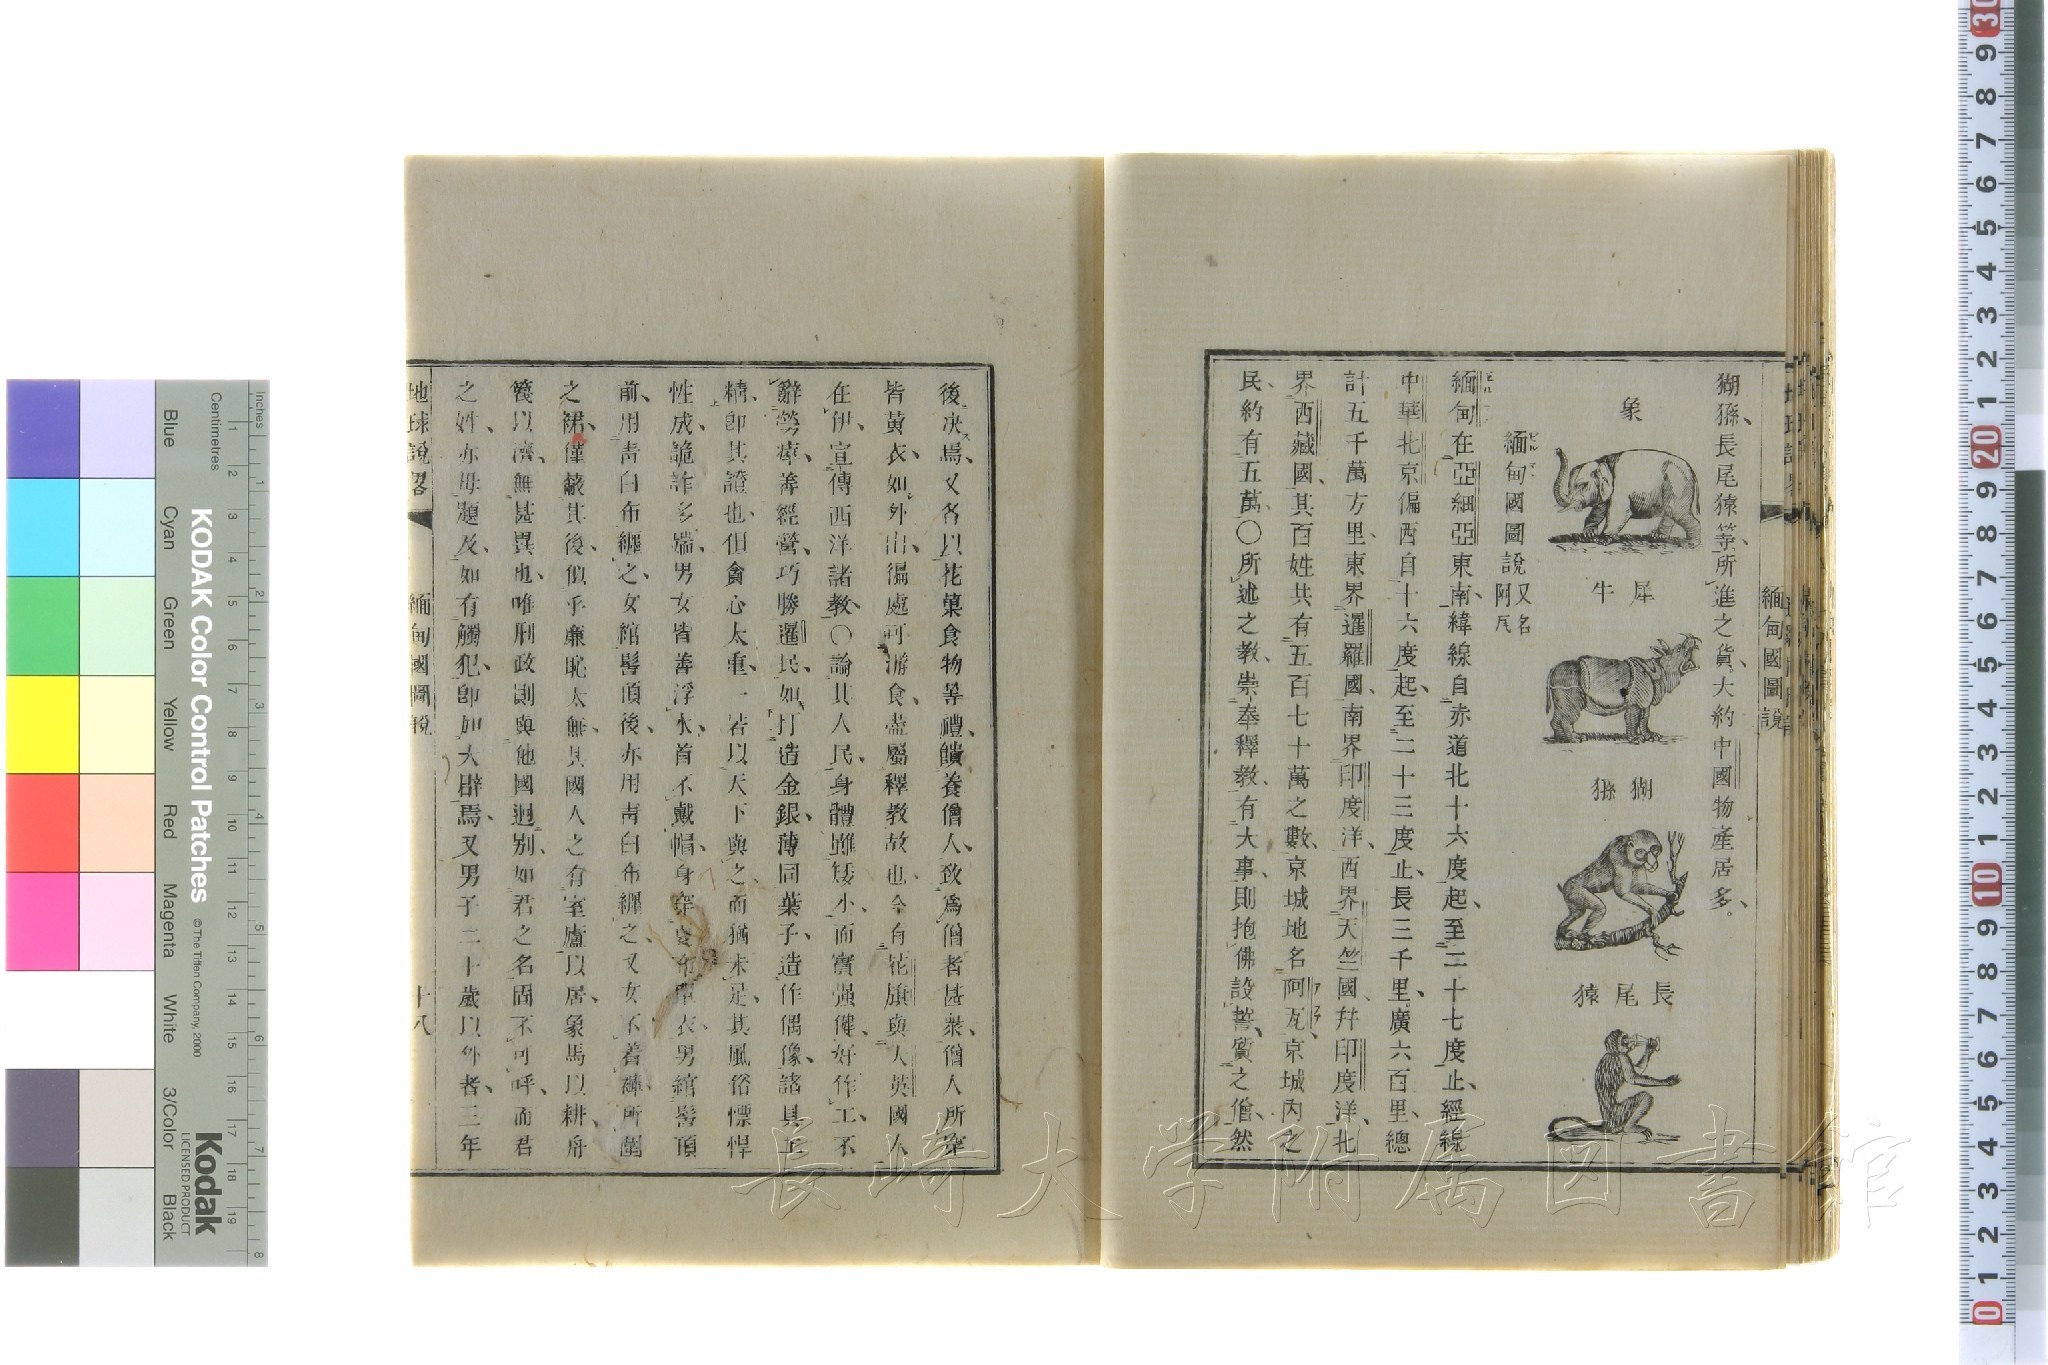 猢猻、長尾猿等、所進之貨、大約中國物產居多。
象
犀牛
猢猻
長尾猿
緬甸國圖說 又名阿瓦
緬甸在亞細亞東南、緯線自赤道北十六度起、至二十七度止、經線
中華北京偏西自十六度起、至二十三度止、長三千里、廣六百里、總
計五千萬方里、東界暹羅國、南界印度洋、西界天竺國幷印度洋、北
界西藏國、其百姓共有五百七十萬之數、京城地名阿瓦京城內之
民、約有五萬、〇所述之教、崇奉釋教、有大事、則抱佛設誓、質之僧、然
緬甸國圖說
後決焉、又各以花菓食物等禮、饋養僧人、致爲僧者甚衆、僧人所穿
皆黃衣、如外出、徧處可游食、盡屬釋教故也、今有花旗與大英國人
在伊、宣傳西洋諸教、〇論其人民、身體雖矮小、而實强健、好作工、不
辭勞瘁、善經營、巧勝暹民、如打造金銀、薄同葉子、造作偶像、諸具工
精、卽其證也、但貪心太重、一若以天下與之、而猶未足、其風俗慓悍
性成、詭詐多端、男女皆善浮水、首不戴帽、身穿
衣、男綰髻頂
前、用靑白布纏之、女綰髻頂後、亦用靑白布纏之、又女不着褲、所圍
之裙、僅蔽其後、似乎廉恥太無、其國人之有室廬以居、象馬以耕、舟
筏以濟、無甚異也、唯刑政則與他國迥别、如君之名、固不可呼、而君
之姓、亦毋題及、如有觸犯、卽加大辟焉、又男子二十歲以外者、三年
地球說畧
緬甸國圖說
十八
長崎大学附属図書館
KODAK Color Control Patches
© The Tiffen Company, 2000
Kodak
LICENSED PRODUCT
Inches
Centimetres
Blue
Cyan
Green
Yellow
Red
Magenta
White
3/Color
Black